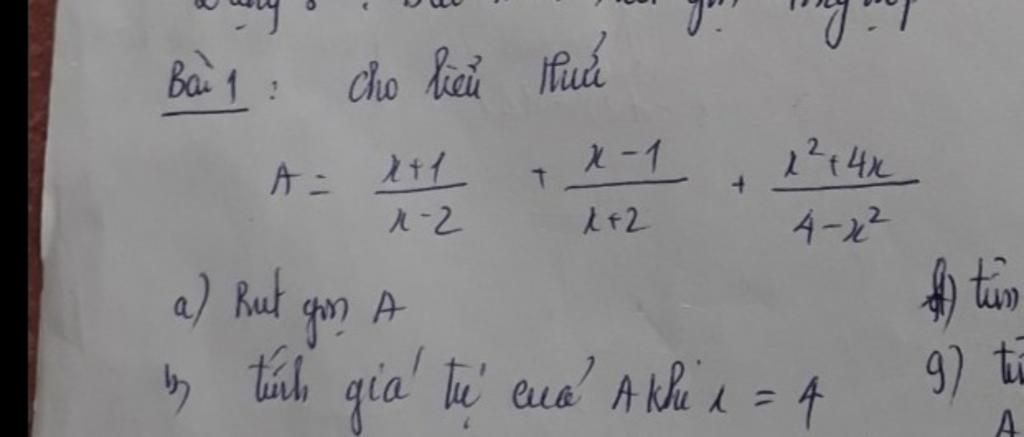 Bài 1 : Cho biểu thức
A = \frac{x+1}{x-2} + \frac{x-1}{x+2} + \frac{x^2+4x}{4-x^2}
a) Rút gọn A
f) tìm
b) tính giá trị của A khi x = 4
g)
A